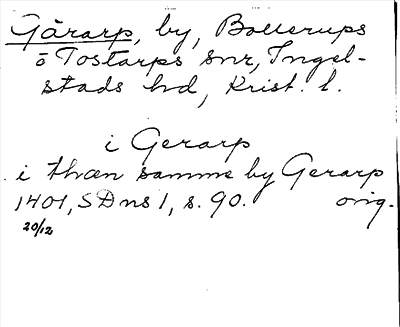 Gårarp, by, Bollerups
o Tostarps snr, Ingel-
stads hd, Krist. l.
i Gerarp
i thæn samme by Gerarp
1401, SDns 1, s. 90. orig.
20/12